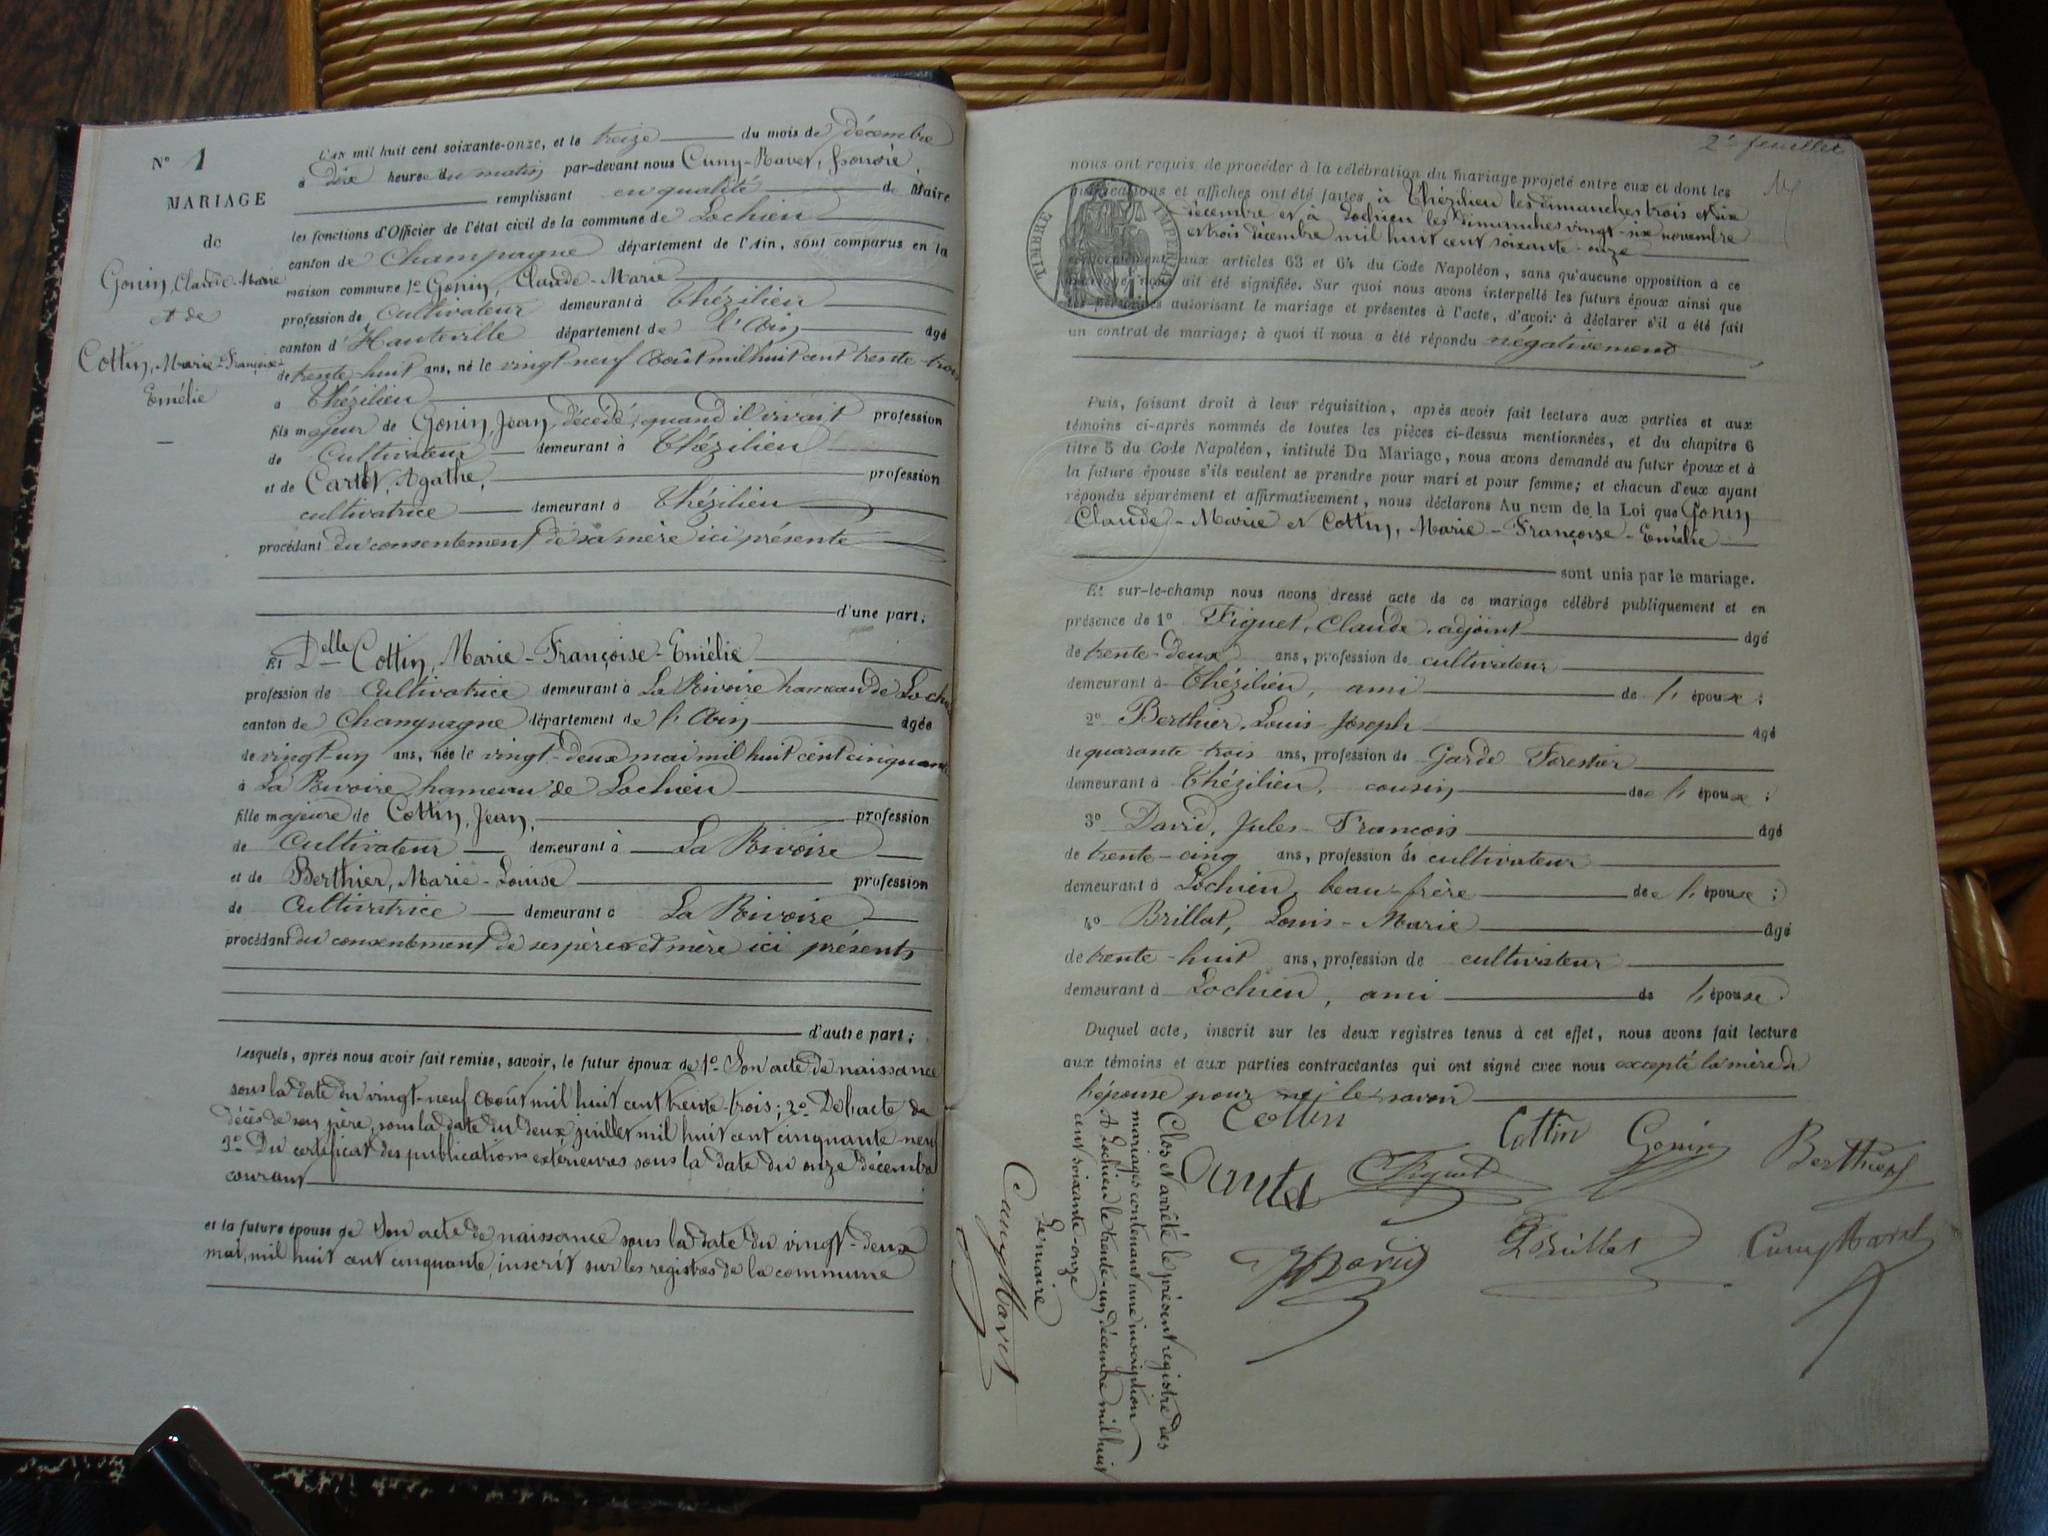 N° 1
MARIAGE
de
Gonin, Claude-Marie
et de
Cottin, Marie-Françoise-
Emélie
L'an mil huit cent soixante-onze, et le treize du mois de décembre
à dix heures du matin par-devant nous Cuny-Ravet, honoré
remplissant en qualité de Maire
les fonctions d'Officier de l'état civil de la commune de Lochieu
canton de Champagne département de l'Ain, sont comparus en la
maison commune 1° Gonin, Claude-Marie
profession de cultivateur demeurant à Thézilieu
canton d'Hauteville département de l'Ain âgé
de trente-huit ans, né le vingt-neuf Août mil huit cent trente-trois
à Thézilieu
fils majeur de Gonin, Jean, décédé, quand il vivait profession
de Cultivateur demeurant à Thézilieu
et de Agathe, profession
cultivatrice demeurant à Thézilieu
procédant du consentement de sa mère ici présente
d'une part;
Et Delle Cottin, Marie-Françoise-Emélie
profession de Cultivatrice demeurant à La Rivoire hameau de Lochieu
canton de Champagne département de l'Ain âgée
de vingt-un ans, née le vingt-deux mai mil huit cent cinquante
à La Rivoire hameau de Lochieu
fille majeure de Cottin, Jean, profession
de Cultivateur demeurant à La Rivoire
et de Berthier, Marie-Louise profession
de Cultivatrice demeurant à La Rivoire
procédant du consentement de ses père et mère ici présents
d'autre part;
Lesquels, après nous avoir fait remise, savoir, le futur époux de 1°. Son acte de naissance
sous la date du vingt-neuf Août mil huit cent trente-trois; 2°. De l'acte de
décès de son père, sous la date du deux juillet mil huit cent cinquante-neuf
3°. Du certificat des publications extérieures sous la date du onze décembre
courant
et la future épouse de Son acte de naissance sous la date du vingt-deux
mai, mil huit cent cinquante, inscrit sur les registres de la commune
2e feuillet
nous ont requis de procéder à la célébration du mariage projeté entre eux et dont les
publications et affiches ont été faites à Thézilieu les dimanches trois et dix
décembre et à Lochieu les dimanches vingt-six novembre
et trois décembre mil huit cent soixante-onze
TIMBRE IMPERIAL
conformément aux articles 63 et 64 du Code Napoléon, sans qu'aucune opposition à ce
ait été signifiée. Sur quoi nous avons interpellé les futurs époux ainsi que
les personnes autorisant le mariage et présentes à l'acte, d'avoir à déclarer s'il a été fait
un contrat de mariage; à quoi il nous a été répondu négativement
Puis, faisant droit à leur réquisition, après avoir fait lecture aux parties et aux
témoins ci-après nommés de toutes les pièces ci-dessus mentionnées, et du chapitre 6
titre 5 du Code Napoléon, intitulé Du Mariage, nous avons demandé au futur époux et à
la future épouse s'ils veulent se prendre pour mari et pour femme; et chacun d'eux ayant
répondu séparément et affirmativement, nous déclarons Au nom de la Loi que Gonin
Claude-Marie et Cottin, Marie-Françoise-Emélie
sont unis par le mariage.
Et sur-le-champ nous avons dressé acte de ce mariage célébré publiquement et en
présence de 1° Figuet, Claude, adjoint âgé
de trente-deux ans, profession de cultivateur
demeurant à Thézilieu, ami de l'époux;
2° Berthier, Louis-Joseph âgé
de quarante-trois ans, profession de Garde Forestier
demeurant à Thézilieu, cousin de l'époux;
3° David, Jules-François âgé
de trente-cinq ans, profession de cultivateur
demeurant à Lochieu, beau-frère de l'épouse;
4° Brillat, Louis-Marie âgé
de trente-huit ans, profession de cultivateur
demeurant à Lochieu, ami de l'épouse.
Duquel acte, inscrit sur les deux registres tenus à cet effet, nous avons fait lecture
aux témoins et aux parties contractantes qui ont signé avec nous excepté la mère de
l'épouse pour ne le savoir
Cottin
Cottin Gonin Berthier
C Figuet
JDavid LBrillat Cuny Ravet
Clos et arrêté le présent registre des
mariages contenant une inscription
A Lochieu le trente-un décembre mil huit
cent soixante-onze
Le maire
Cuny Ravet